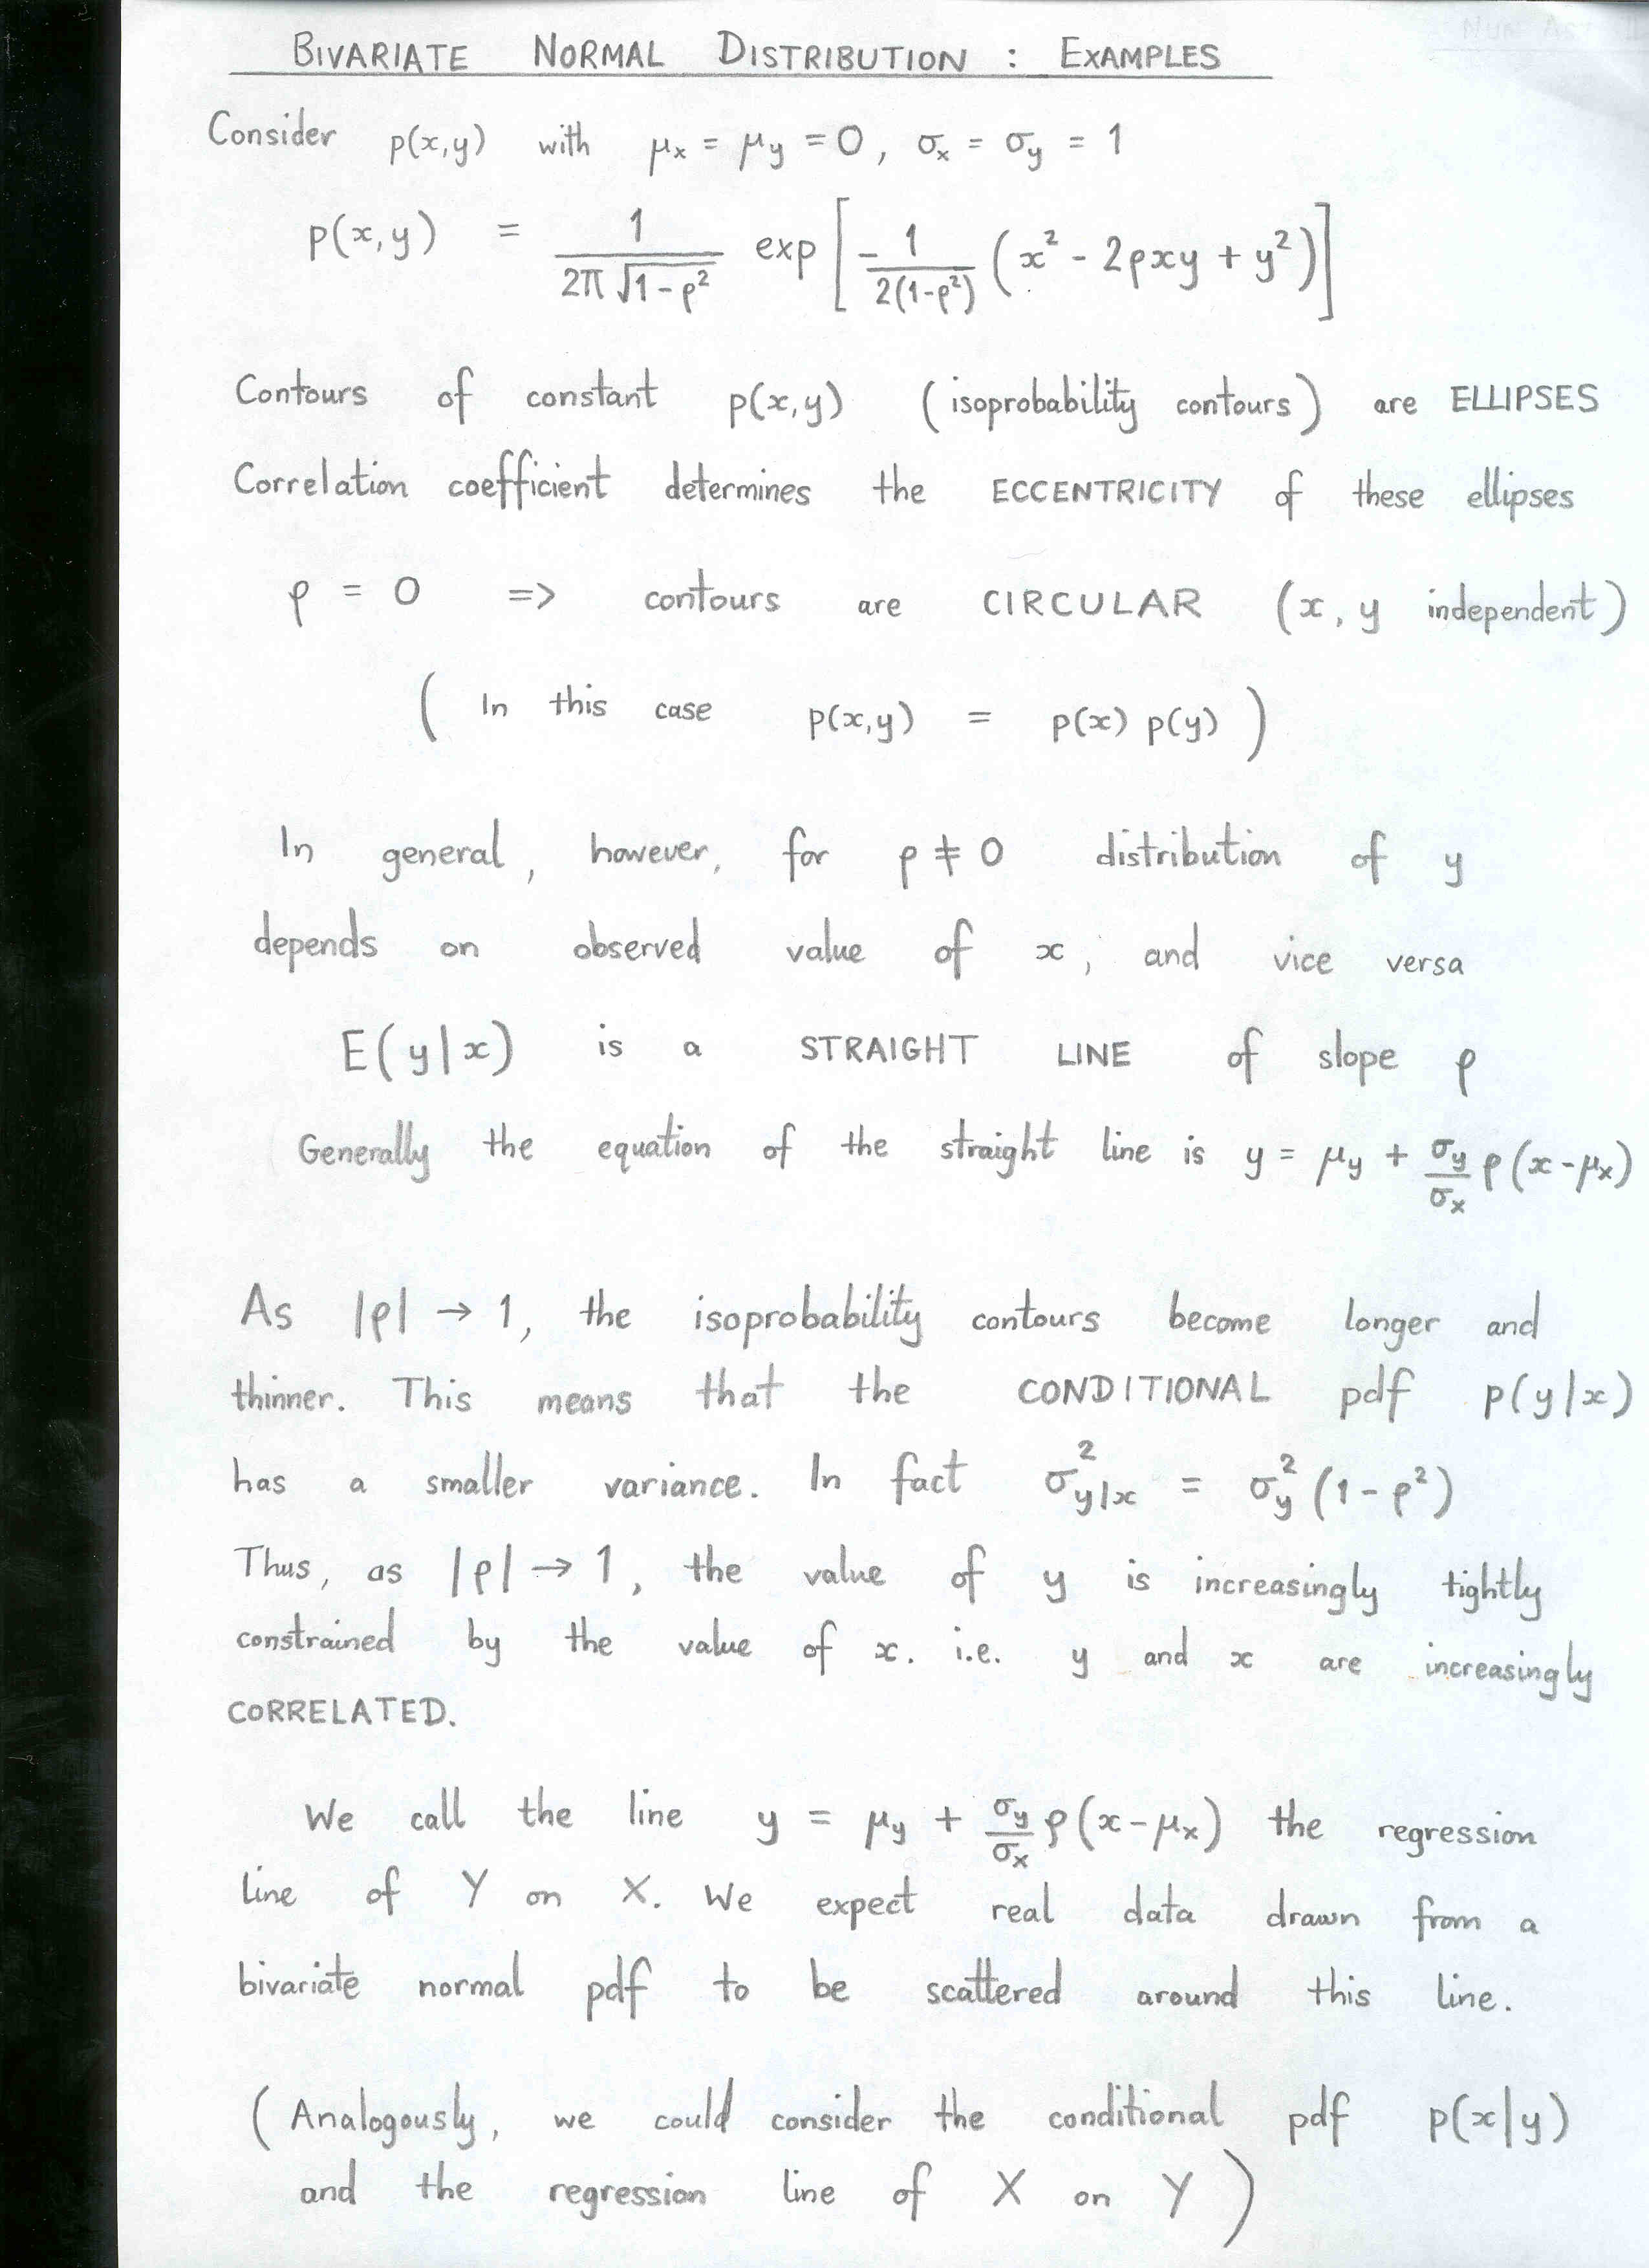 BIVARIATE NORMAL DISTRIBUTION : EXAMPLES
Consider p(x,y) with μx = μy = 0, σx = σy = 1
p(x,y) = 1/(2π√(1-ρ²)) exp[-1/(2(1-ρ²)) (x² - 2ρxy + y²)]
Contours of constant p(x,y) (isoprobability contours) are ELLIPSES
Correlation coefficient determines the ECCENTRICITY of these ellipses
ρ = 0 => contours are CIRCULAR (x, y independent)
(In this case p(x,y) = p(x) p(y))
In general, however, for ρ ≠ 0 distribution of y
depends on observed value of x, and vice versa
E(y|x) is a STRAIGHT LINE of slope ρ
Generally the equation of the straight line is y = μy + σy/σx ρ(x-μx)
As |ρ| → 1, the isoprobability contours become longer and
thinner. This means that the CONDITIONAL pdf p(y|x)
has a smaller variance. In fact σ²y|x = σ²y (1-ρ²)
Thus, as |ρ| → 1, the value of y is increasingly tightly
constrained by the value of x. i.e. y and x are increasingly
CORRELATED.
We call the line y = μy + σy/σx ρ(x-μx) the regression
line of Y on X. We expect real data drawn from a
bivariate normal pdf to be scattered around this line.
(Analogously, we could consider the conditional pdf p(x|y)
and the regression line of X on Y)